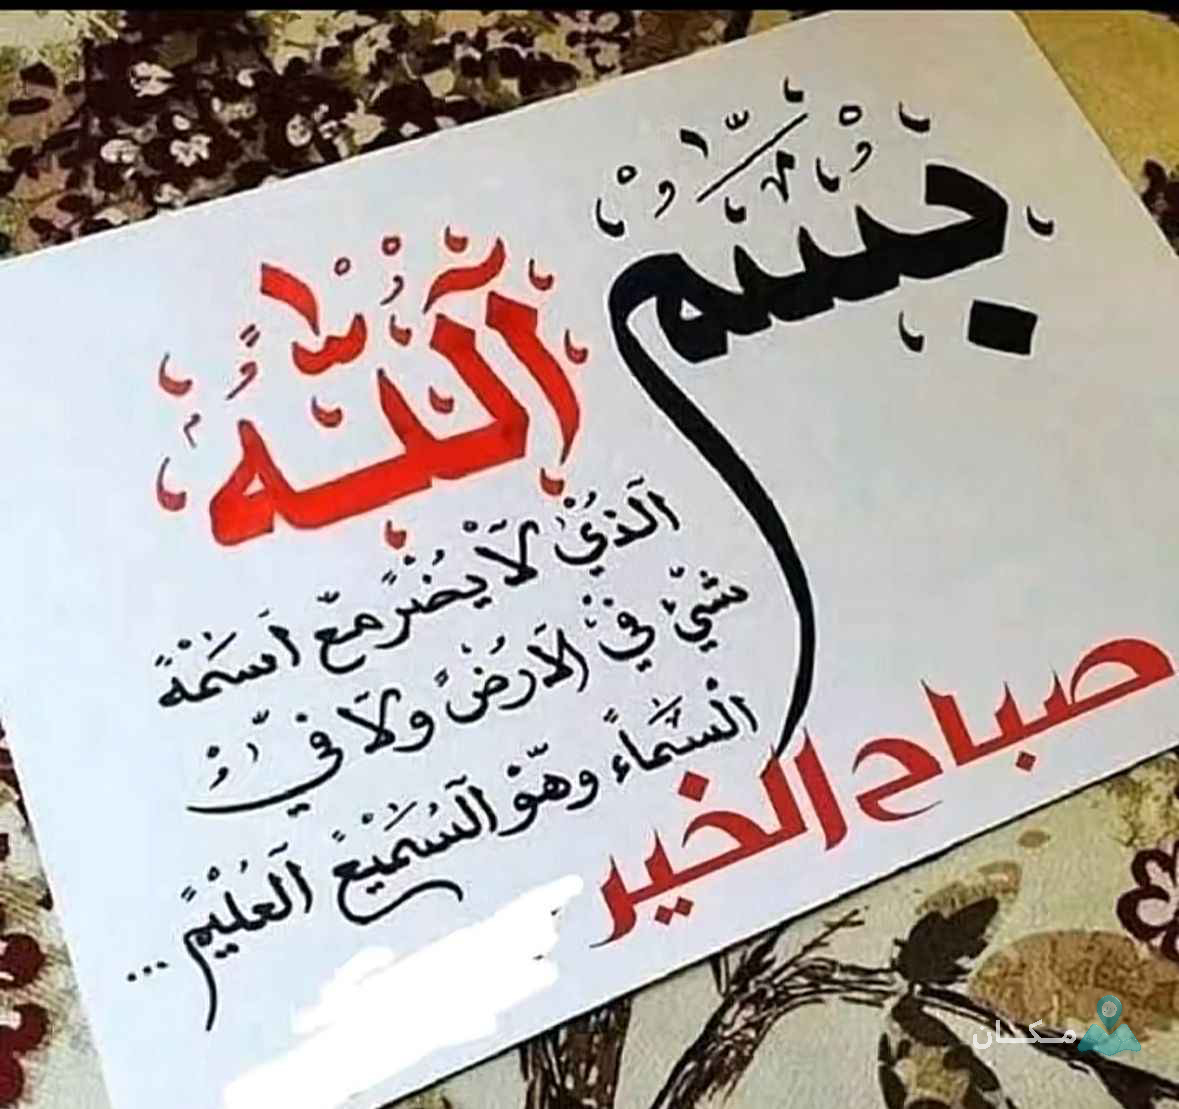 بسم
الله
الذي لا يضر مع اسمه
شيء في الارض ولا في
السماء وهو السميع العليم ...
صباح الخير
مكان